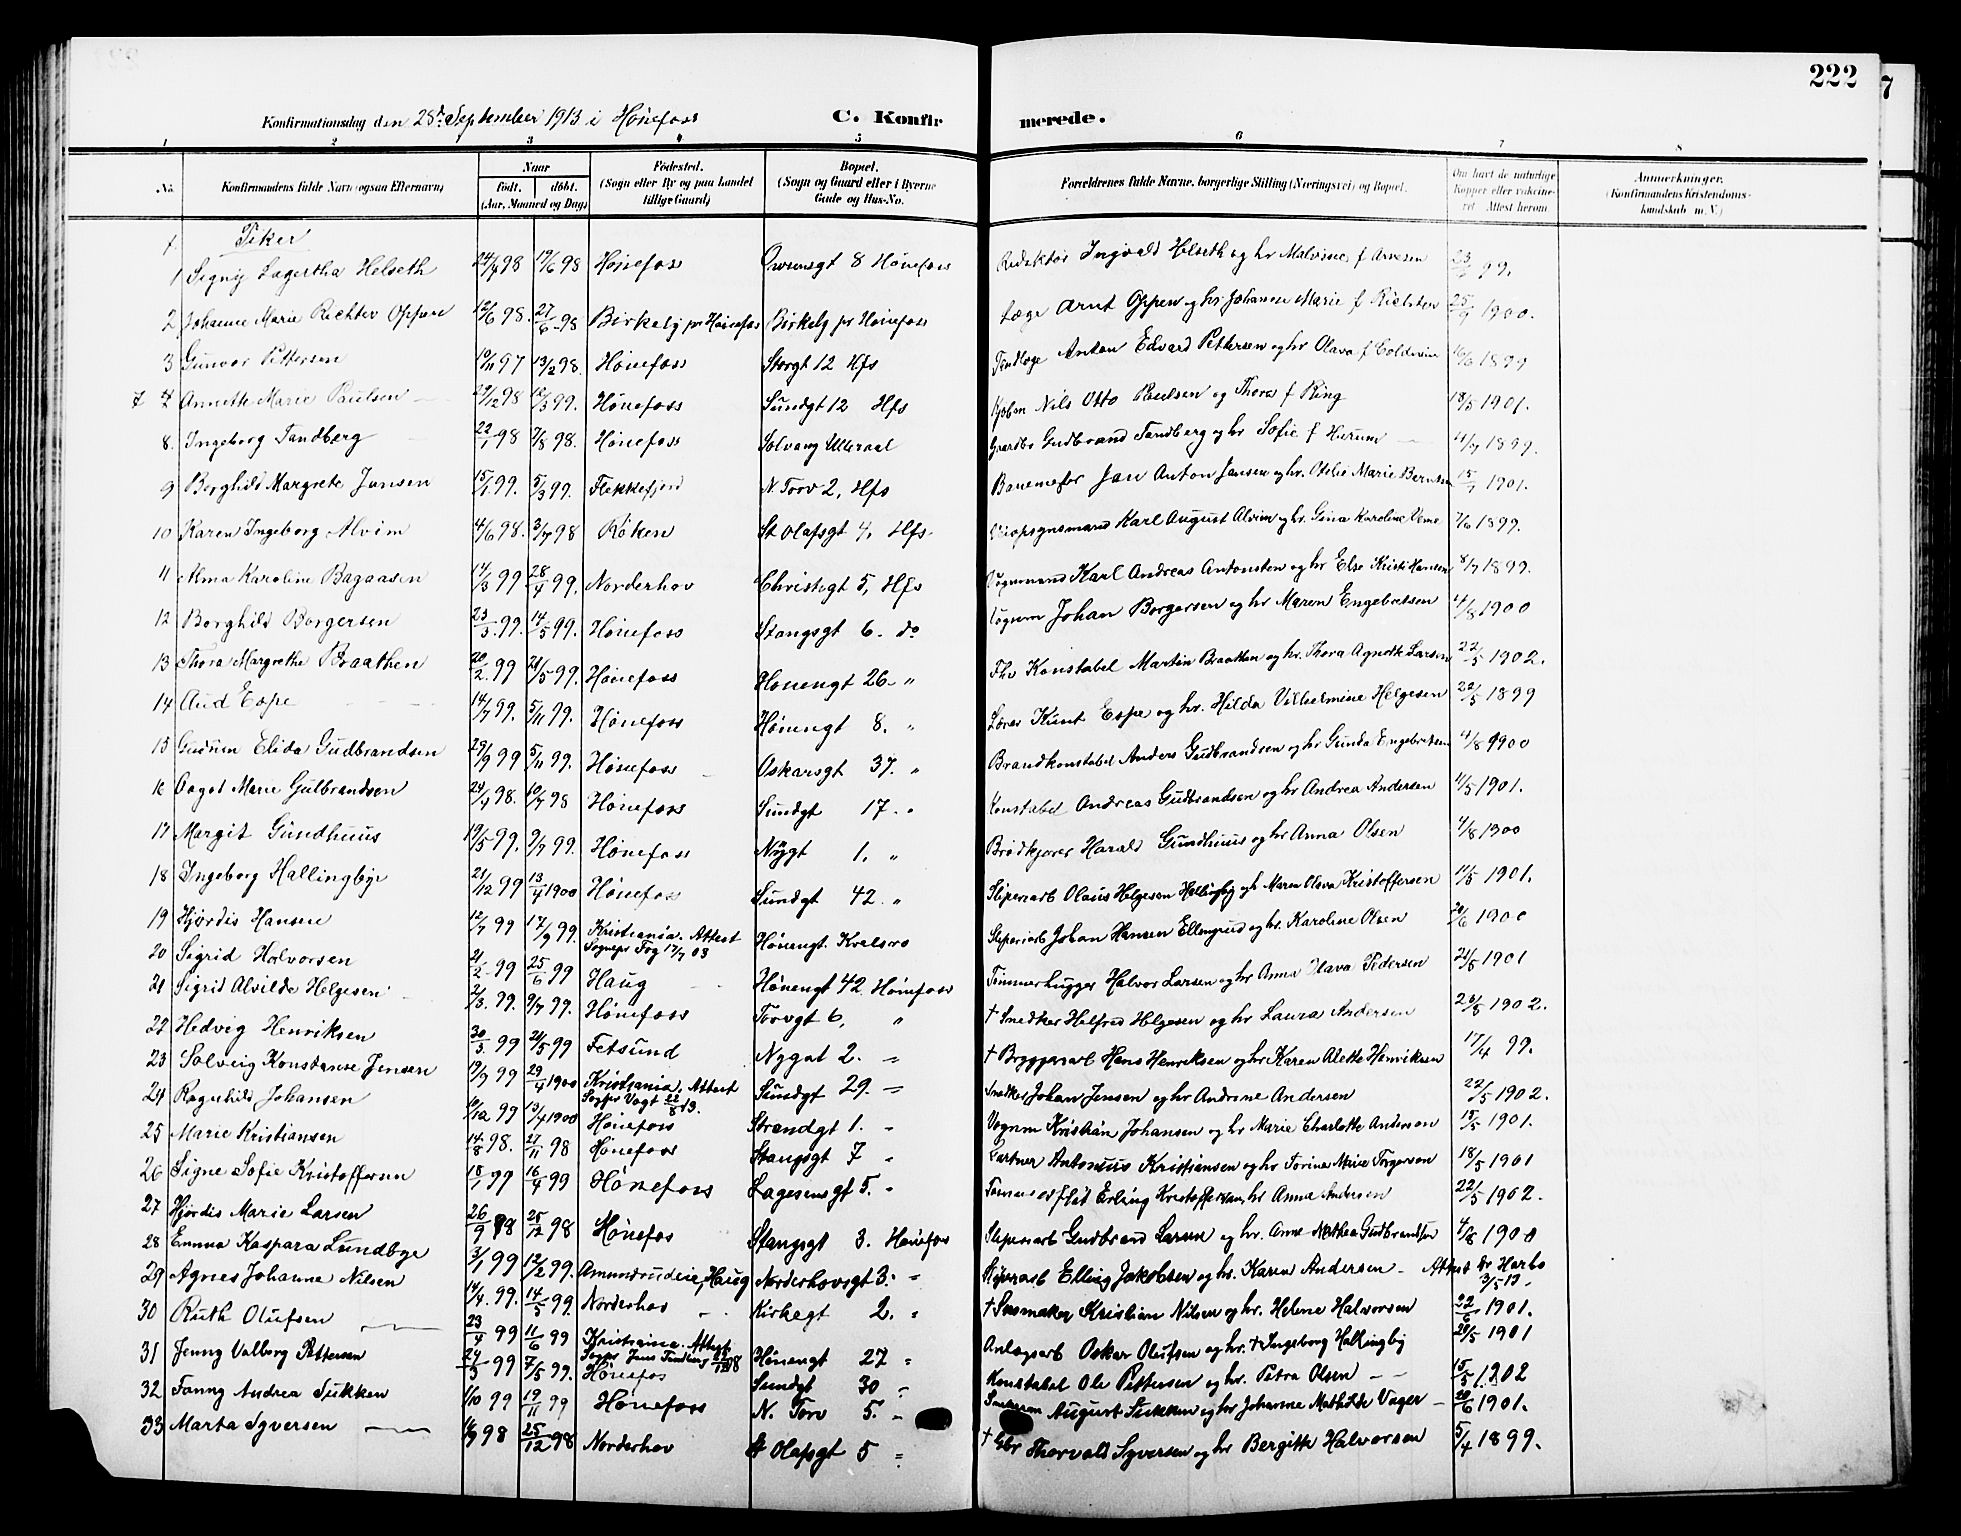 222
Konfirmationsdag den 28de September 1913 i Hönefoss C. Konfirmerede.
1 2 3 4 5 6 7 8
No. Konfirmandens fulde Navn (ogsaa Efternavn) Naar födt. döbt. (Aar, Maaned og Dag) Födested. (Sogn eller By og paa Landet tillige Gaard) Bopæl. (Sogn og Gaard eller i Byerne Gade og Hus-No. Forældrenes fulde Navne, borgerlige Stilling (Næringsvei) og Bopæl. Om havt de naturlige Kopper eller vaccineret. Attest herom. Anmerkninger. (Konfirmandens Kristendomskundskab m. V.)
Piker
1 Signy Lagertha Helseth 24/4 98 19/6 98 Hönefoss Owrensgt 8 Hönefoss Redaktör Ingvald Helseth og hr Malvine f Arnesen 23/ 99.
2 Johanne Marie Richter Oppen 12/6 98. 27/6 98 Birkely pr Hönefos Birkely pr Hönefoss Læge Arnt Oppen og hr Johanne Marie f Richter 25/9 1900.
3 Gunvor Pettersen 10/11 97 13/2 98. Hönefoss Storgt 12 Hfs Tandlæge Anton Edvard Pettersen og hr Olava f Coldevin 16/6 1899
7 4 Annette Marie Paulsen 29/12 98 12/3 99. Hönefoss Sundgt 12 Hfs Kjöbm Nils Otto Paulsen og Thora f Ring 18/5 1901.
8. Ingeborg Tandberg 22/1 98 7/8 98. Hönefoss Solvang Ulleraal Gaardbr Gudbrand Tandberg og hr Sofie f Hurum 4/7 1899.
9 Borghild Margrete Jansen 15/1 99. 5/3 99. Flekkefjord N Torv 2, Hfs Banemester Jan Anton Jansen og hr. Otelie Marie Berntsen 15/7 1901.
10 Karen Ingeborg Alvim 4/6 98. 3/7 98 Röken St Olafsgt 4, Hfs. Opsynsmand Karl August Alvim og hr. Gina Karoline Veme 7/6 1899.
11 Alma Karoline Bagaasen 14/3 99 28/4 99. Norderhov Christiegt 5, Hfs Vognmand Karl Andreas Antonsen og hr Else Kristi Hansen 8/7 1899.
12 Borghild Borgersen 23/3. 99. 14/5 99. Hönefoss Stangsgt 6. do Vognm Johan Borgersen og hr Maren Engebretsen 4/8 1900
13 Thora Margrethe Braathen 20/2. 99 21/5 99. Hönefoss Hönengt 26. " Fhv Konstabel Martin Braathen og hr. Thora Agnethe Larsen 22/5 1902.
14 Aud Espe 14/7 99. 5/11 99. Hönefoss Hönengt 8. " Lærer Knut Espe og hr. Hilda Vilhelmine Helgesen 20/5 1899
15 Gudrun Elida Gudbrandsen 29/9 99 5/11 99. Hönefoss Oskarsgt 37. " Brandkonstabel Anders Gudbrandsen og hr Gunda Engebretsen 4/8 9900
16 Aagot Marie Gulbrandsen 24/4 98. 10/7 98 Hönefoss Sundgt 17. " Konstabel Andreas Gudbrandsen og hr Andrea Andersen 4/5 1901.
17 Margit Gundhuus 19/5 99. 9/7 99. Hönefoss Nygt 1. " Brödkjører Harald Gundhuus og hr Anna Olsen 4/8 1300
18 Ingeborg Hallingbye 21/12 99 13/4 1900 Hönefoss Sundgt 42. " Sliperiarb Olaus Helgesen Hallingby og hr Maren Olava Kristoffersen 11/5 1901.
19 Hjördis Hansen 12/7 99 17/9 99. Kristiania. Attest Sognepr Fog 17/7 03 Hönengt. Kvelsro Sliperiarb Johan Hansen Ellengrud og hr. Karoline Olsen 20/6 1900
20 Sigrid Halvorsen 21/2 99 25/6 99 Haug Hönengt 42 Hönefoss Tömmerhugger Halvor Larsen og hr Anna Olava Pedersen 21/5 1901
21 Sigrid Alvilde Helgesen 21/3. 99. 9/7 99. Hönefoss Torvgt 6, " † Snedker Helfred Helgesen og hr Laura Andersen 23/5 1902.
22 Hedvig Henriksen 30/3. 99 21/5 99 Fetsund Nygat 2. " † Bryggeriarb Hans Henriksen og hr Karen Alette Henriksen 17/4 99.
23 Solveig Konstanse Jensen 19/9 99 29/4 1900 Kristiania. Attest Sogpr Vogt 22/8 13. Sundgt 29. " Snedker Johan Jensen og hr Andrine Andersen 22/5 1902.
24 Ragnhild Johansen 10/12 99 13/4 1900 Hönefoss Strandgt 1. " Vognm Kristian Johansen og hr Marie Charlotte Andersen 15/5 1901.
25 Marie Kristiansen 14/8 98. 27/11 98 Hönefoss Stangsgt 7 " Gartner Antonius Kristiansen og hr Torine Marie Torgersen 18/5 1901
26 Signe Sofie Kristoffersen 18/1 99 16/4 99 Hönefoss Lagesensgt 5. " Erling Kristoffersen, hr Anna Andersen 22/5 1902.
27 Hjördis Marie Larsen 26/9 98 25/12 98 Hönefos Stangsgt 3. Hönefos Sliperiarb Gudbrand Larsen og hr. Anne Mathea Gudbrandsen 4/8 1900
28 Emma Kaspara Lundbye 3/1 99 12/2 99. Amundrudeie, Haug Norderhovsgt 3. " Sliperiarb Elling Jakobsen og hr. Karen Andersen - Attest Dr Harbo 3/5 13.
29 Agnes Johanne Nilsen 14/4. 99. 14/5 99. Norderhov Kirkegt 2. " † Skomaker Kristian Nilsen og hr. Helene Halvorsen 22/6 1901.
30 Ruth Olufsen 23/4 99 11/6 99 Kristiania. Attest Sogpr Jens Tandberg Hönengt 27 " Anlægsarb Oskar Olufsen og hr. † Ingeborg Hallingby 20/5 1901
31 Jenny Valborg Pettersen 24/3 99 7/5 99. Hönefos Sundgt 30 " Konstabel Ole Pettersen og hr. Petra Olsen 15/5 1902
32 Fanny Andrea Sukken 1/10 99 19/11 99 Hönefoss N. Torv 5. " August Sukken og hr Johanne Mathilde Vager 20/6 1901.
33 Marta Syversen 16/9 98 25/12 98 Norderhov St Olafsgt 5 " † Gbr Thorvald Syversen og hr Bergitte Halvorsen 5/4 1899.